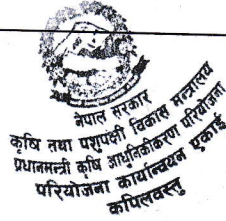 नेपाल सरकार
कृषि तथा पशुपन्छी विकास मन्त्रालय
प्रधानमन्त्री कृषि आधुनिकीकरण परियोजना
परियोजना कार्यान्वयन एकाई
कपिलवस्तु